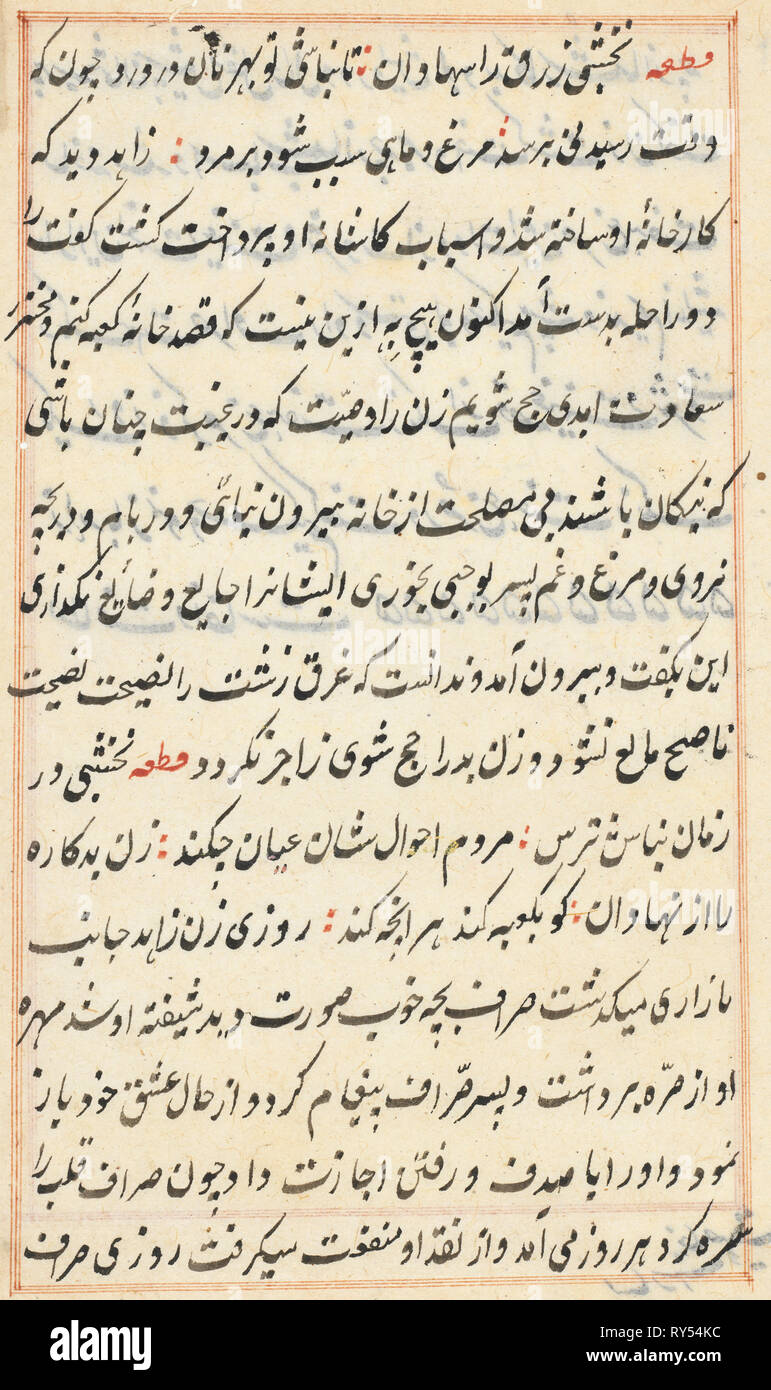 قطعه نخشبی زرق را سها دان : تا نباشی تو بهر نان در درد چون که
وقت رسیدنی برسد : مرغ و ماهی سبب شود بر مرد : زاهد دید که
کارخانهٔ او ساخته شد و اسباب کاشانه او پرداخت گشت گفت را
دو راحله بدست آمد اکنون هیچ به ازین نیست که قصد خانهٔ کعبه کنم و
سعادت ابدی حج شویم زن را وصیت که در غیبت چنان باشی
که نیکان باشند بی مصلحت از خانه بیرون نیائی و ور بام و دریچه
نروی و مرغ و غم پسر بوجبی بخوری ایشانرا جایع و ضایع نگذاری
این بگفت و بیرون آمد و ندانست که عرق زشت را نصیحت نصیحت
ناصح مانع نشود و زن بد را حج شوی زاجر نگردد قطعه نخشبی در
زمان نباش ترس : مردم احوال شان عیان چکند : زن بدکاره
را از نها دان : کو بکعبه کند هر انچه کند : روزی زن زاهد جانب
بازاری میگذشت صراف بچه خوب صورت دید شیفته او شد مهره
او از صره برداشت و پسر صراف پیغام کرد و از حال عشق خود باز
نمود و او را با صدف و رفتن اجازت داد چون صراف قلب را
سره کرد هر روز می آمد و از نقد او منفعت میگرفت روزی صراف
alamy
RY54KC
www.alamy.com